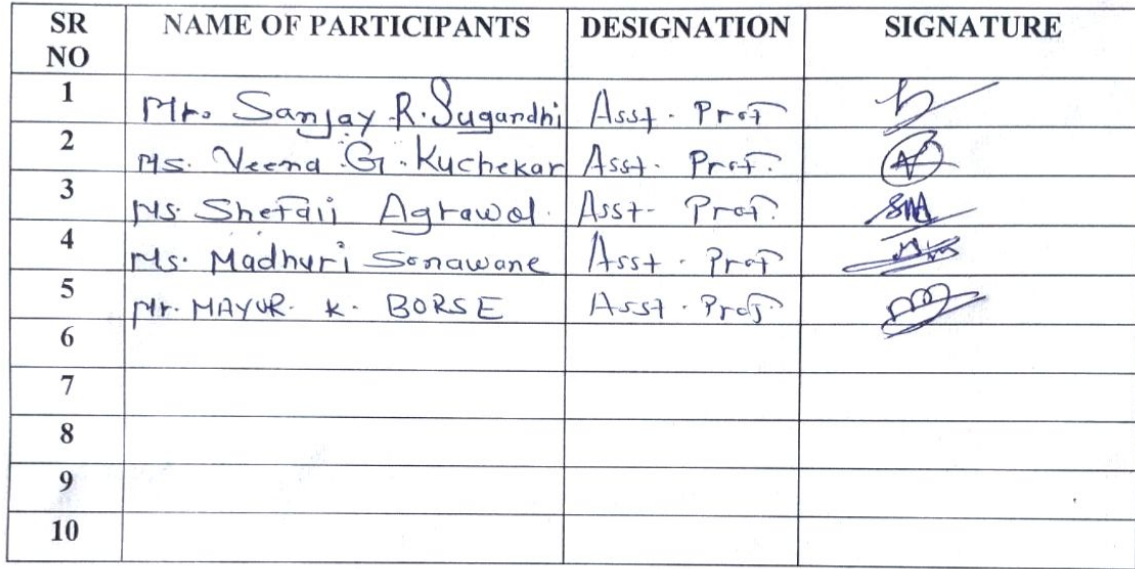 SR NO NAME OF PARTICIPANTS DESIGNATION SIGNATURE
1 Mr. Sanjay R. Sugandhi Asst. Prof
2 Ms. Veena G. Kuchekar Asst. Prof.
3 Ms. Shefali Agrawal. Asst. Prof.
4 Ms. Madhuri Sonawane Asst. Prof
5 Mr. MAYUR. K. BORSE Asst. Prof.
6
7
8
9
10